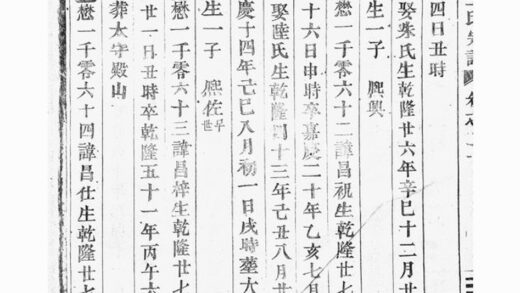 氏宗譜
四日丑時
娶朱氏生乾隆廿六年辛巳十二月廿
生一子 熈興
懋一千零六十二諱昌祝生乾隆廿七
十六日申時卒嘉慶二十年乙亥七月
娶陸氏生乾隆四十三年己丑八月廿
慶十四年己巳八月初一日戌時塟大
生一子 熈佐早世
懋一千零六十三諱昌梓生乾隆廿七
廿一日丑時卒乾隆五十一年丙午六
葬太守殿山
懋一千零六十四諱昌仕生乾隆廿七